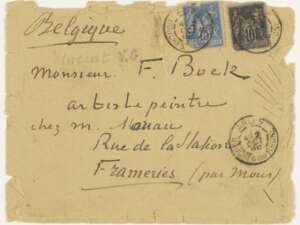 Belgique
Vincent V.G
Monsieur F. Bock
artiste peintre
chez m. Manau
Rue de la Station
Frameries (par Mons)